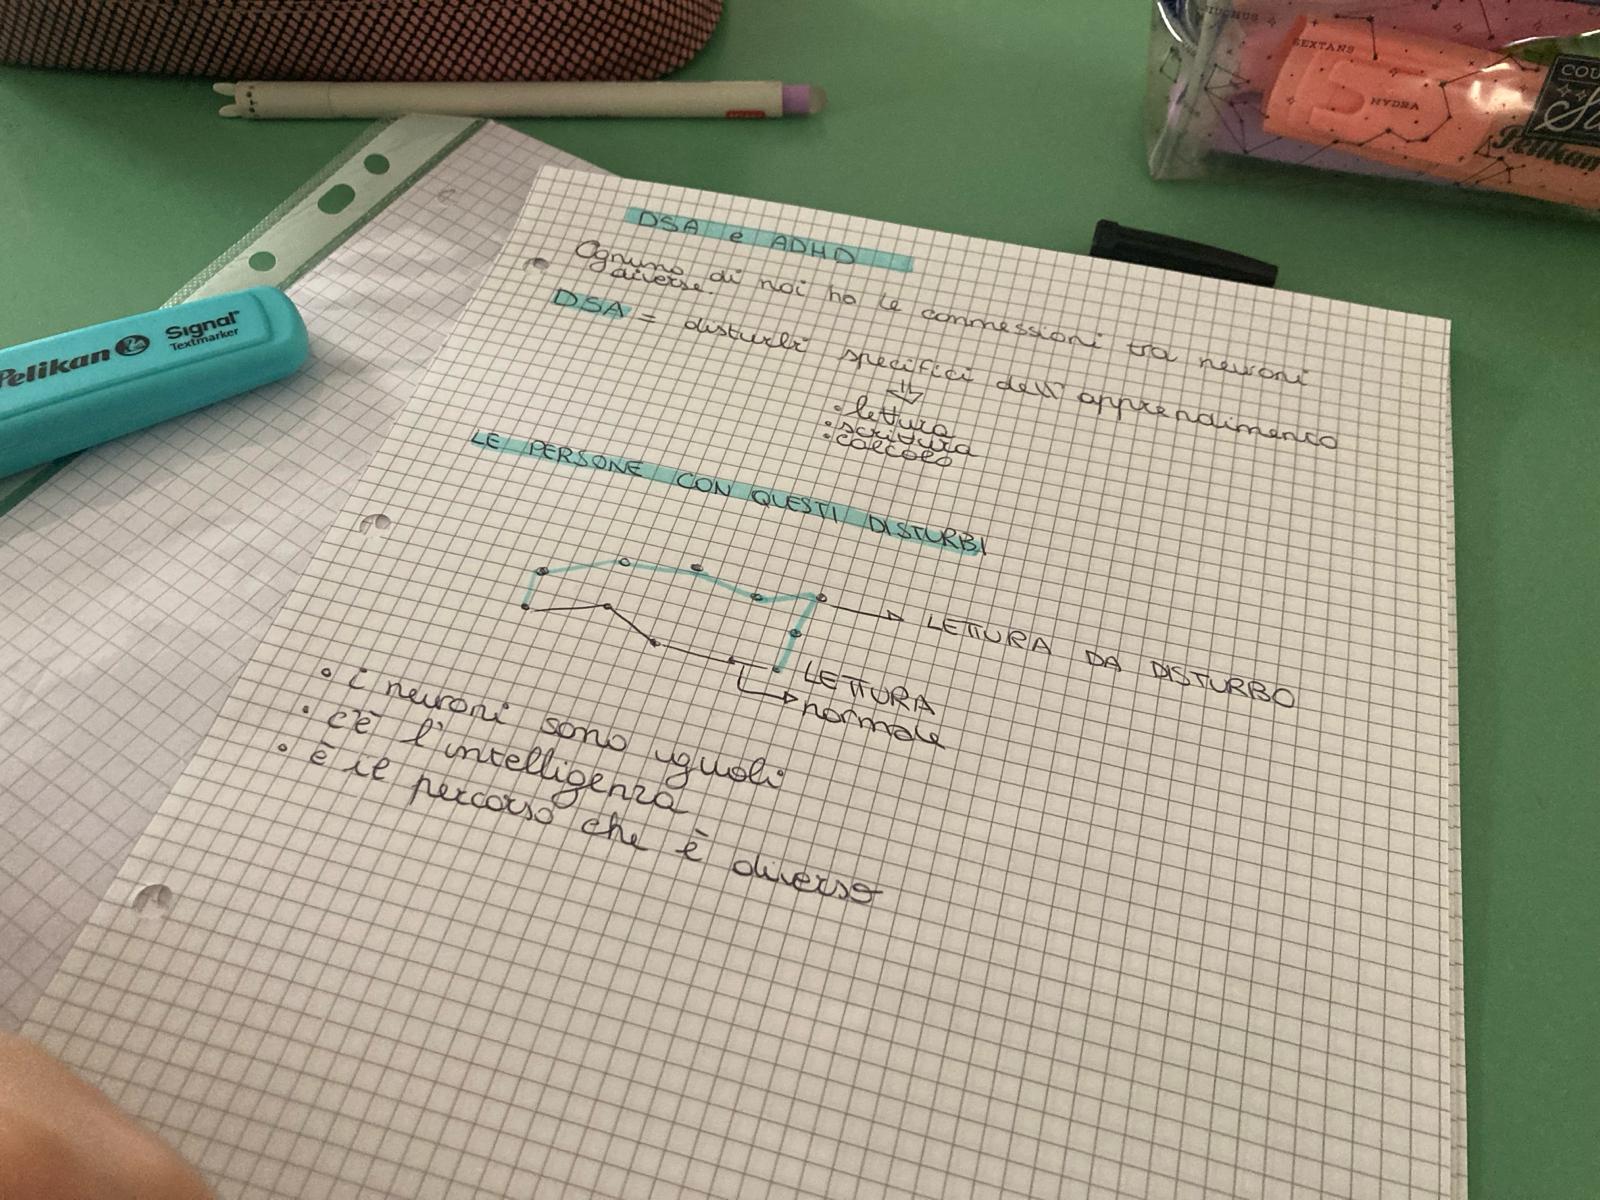 MUCHUS
SEXTANS
HYDRA
COU
Pelikan
Pelikan Signal
Textmarker
DSA e ADHD
Ognuno di noi ha le connessioni tra neuroni
diverse.
DSA = disturbi specifici dell'apprendimento
• lettura
• scrittura
• calcolo
LE PERSONE CON QUESTI DISTURBI
LETTURA DA DISTURBO
LETTURA
normale
• i neuroni sono uguali
• c'è l'intelligenza
• è il percorso che è diverso